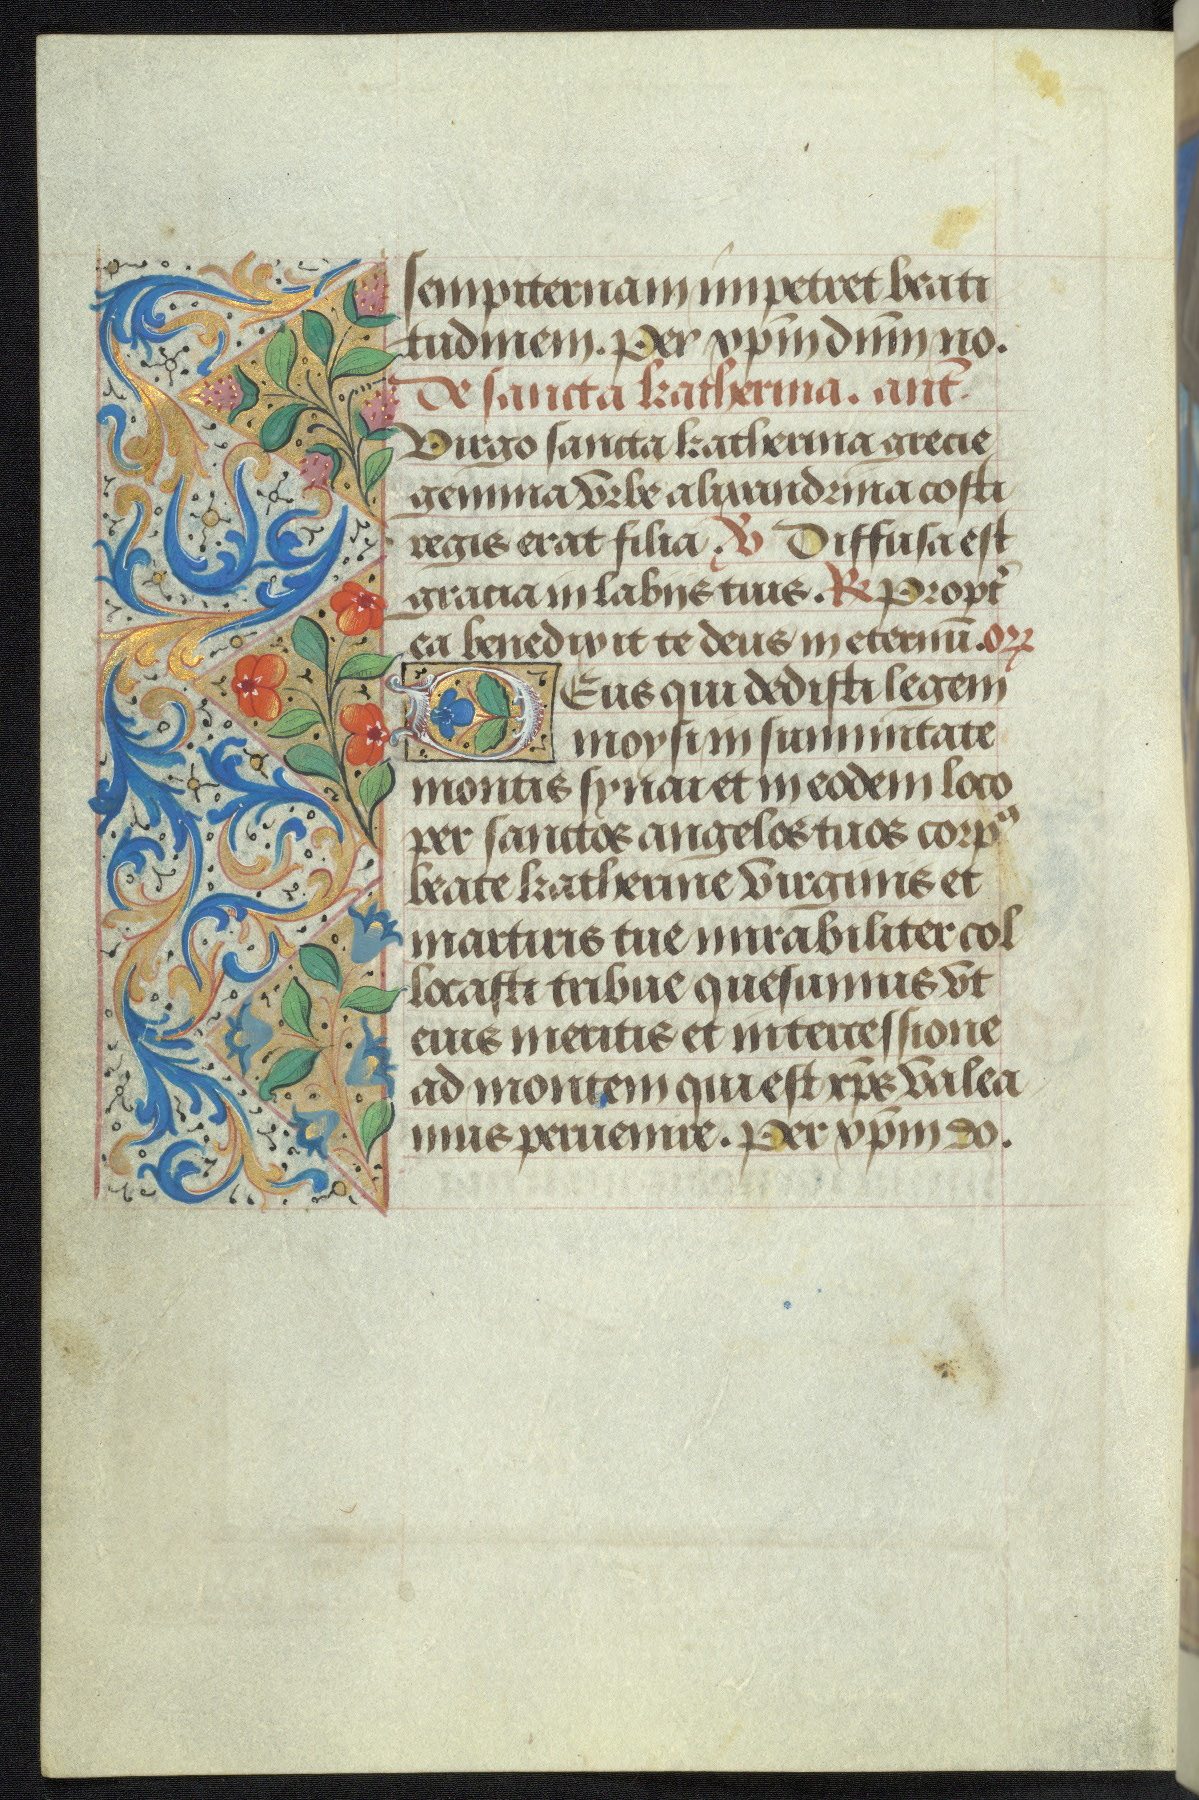 sempiternam impetret beati
tudinem. Per xp̄m dn̄m no.
De sancta katherina. ant̄.
Virgo sancta katherina grecie
gemma vrbe alixandrina costi
regis erat filia. V̷ Diffusa est
gracia in labijs tuis. R̷ Propt̄
ea benedixit te deus in eternū. or̄
Deus qui dedisti legem
moysi in summitate
montis synai et in eodem loco
per sanctos angelos tuos corpꝰ
beate katherine virginis et
martiris tue mirabiliter col
locasti tribue quesumus vt
eius meritis et intercessione
ad montem qui est xp̄s valea
mus peruenire. Per xp̄m do.